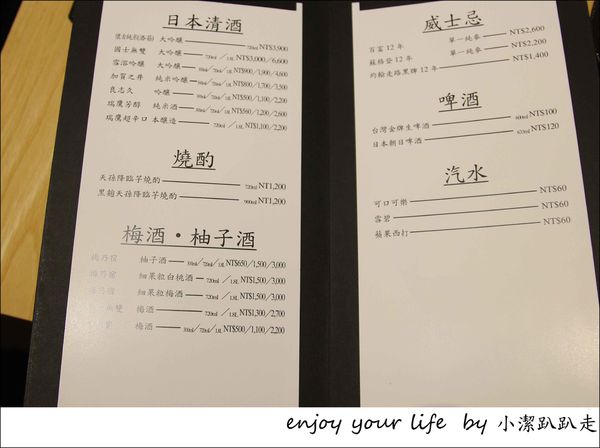 日本清酒
大吟釀 720ml NT$3,900
國士無雙 大吟釀 720ml／1.8L NT$3,000／6,600
雪溶吟釀 大吟釀 300ml／720ml／1.8L NT$900／1,900／4,600
加賀之井 純米吟釀 300ml／720ml／1.8L NT$800／1,700／3,500
良志久 吟釀 300ml／720ml／1.8L NT$500／1,100／2,200
瑞鷹芳醇 純米酒 300ml／720ml／1.8L NT$560／1,200／2,600
瑞鷹超辛口 本釀造 720ml／1.8L NT$1,100／2,200
燒酌
天孫降臨芋燒酌 720ml NT1,200
黑麴天孫降臨芋燒酌 900ml NT1,200
梅酒・柚子酒
桃乃宿 柚子酒 300ml／720ml／1.8L NT$650／1,500／3,000
梅乃宿 細果粒白桃酒 720ml／1.8L NT$1,500／3,000
細果粒梅酒 720ml／1.8L NT$1,500／3,000
無雙 梅酒 720ml／1.8L NT$1,300／2,700
梅酒 300ml／720ml／1.8L NT$500／1,100／2,200
威士忌
百富 12 年 單一純麥 NT$2,600
蘇格登 12 年 單一純麥 NT$2,200
約翰走路黑牌 12 年 NT$1,400
啤酒
台灣金牌生啤酒 600ml NT$100
日本朝日啤酒 633ml NT$120
汽水
可口可樂 NT$60
雪碧 NT$60
蘋果西打 NT$60
enjoy your life by 小潔趴趴走